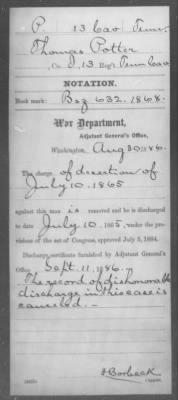 P. 13 Cav Tenn.
Thomas Potter
Co. I, 13 Reg't Tenn Cav
NOTATION.
Book mark: B 632. 1868.
War Department,
Adjutant General's Office,
Washington, Aug 30 1886.
The charge of desertion of
July 10. 1865
against this man is removed and he is discharged
to date July 10. 1865, under the pro-
visions of the act of Congress, approved July 5, 1884.
Discharge certificate furnished by Adjutant General's
Office Sept. 11, 86.
The record of dishonorable
discharge in this case is
canceled.
Copyist.